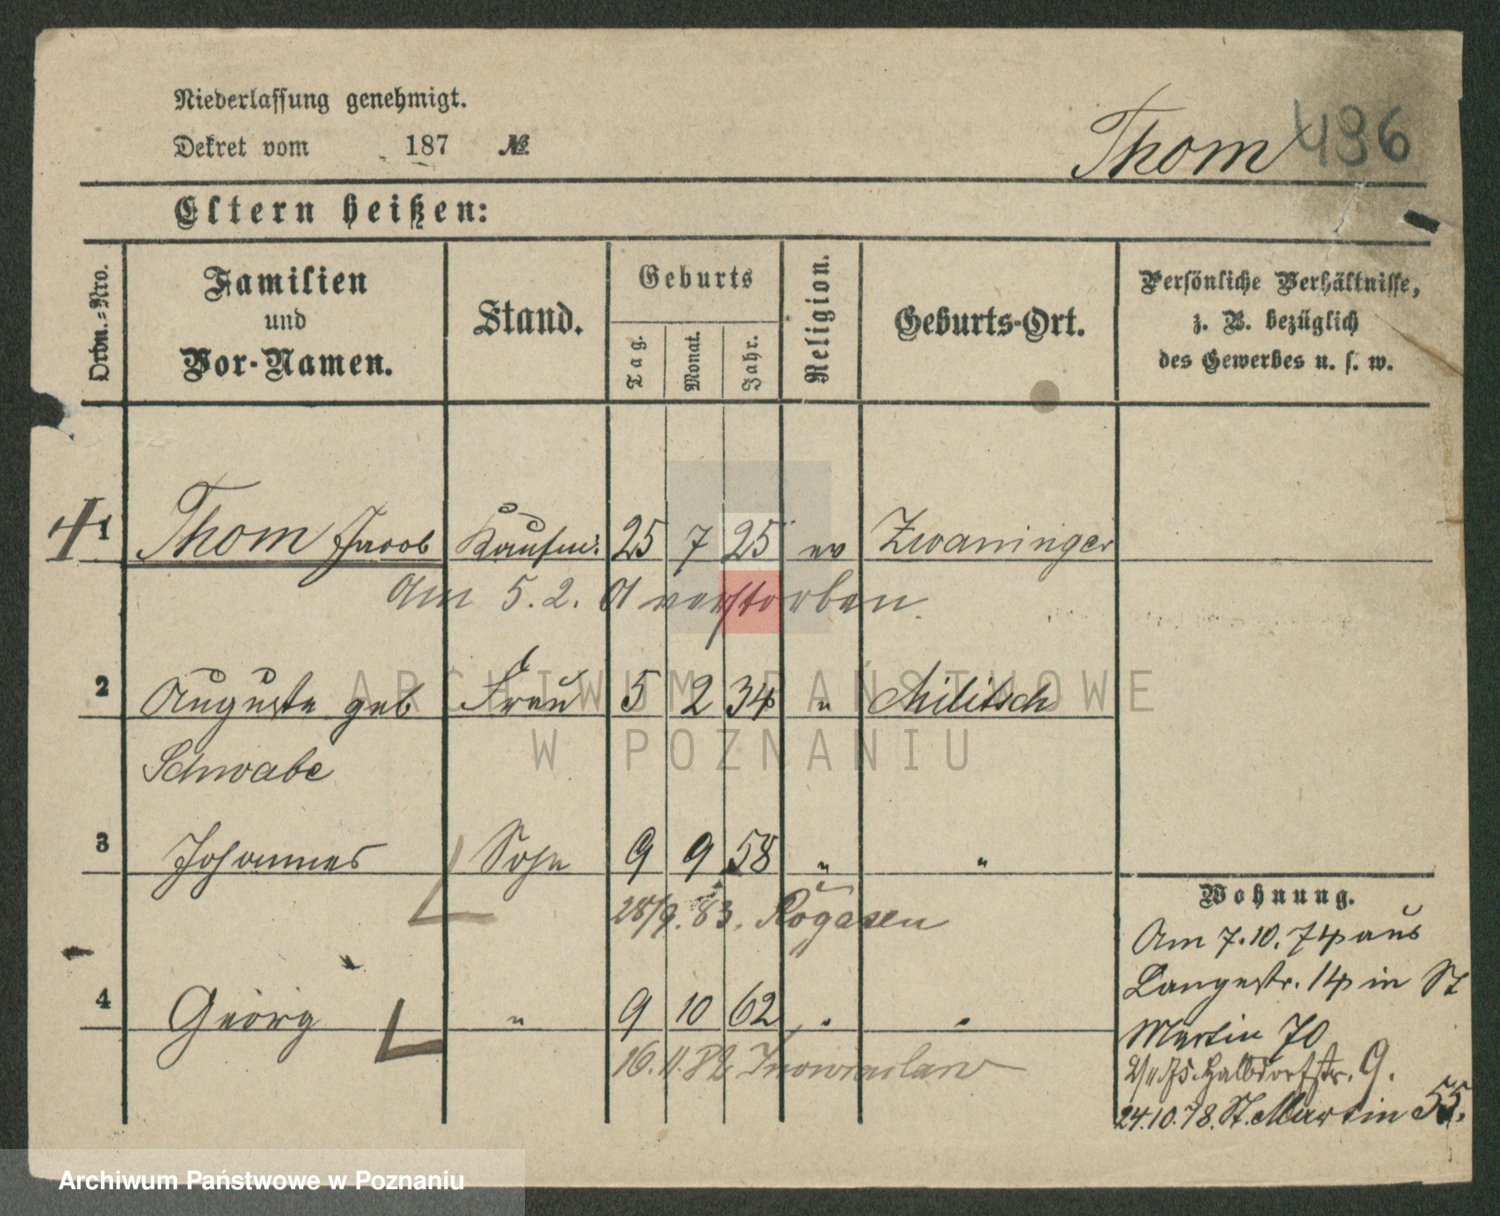 Niederlassung genehmigt.
Dekret vom 187 №
Thom 436
Eltern heißen:
Ordn.-Nro.
Familien und Vor-Namen.
Stand.
Geburts
Tag.
Monat.
Jahr.
Religion.
Geburts-Ort.
Persönliche Verhältnisse,
z. B. bezüglich
des Gewerbes u. s. w.
1 Thom Jacob Kaufm: 25 7 25 ev Zwaninger
Am 5.2. verstorben
2 Auguste geb Frau 5 2 34 " Militsch
Schwabe
3 Johannes Sohn 9 9 58 " "
28/9. 83. Rogasen
4 Georg " 9 10 62 " "
16.11.82 Inowraclaw
Wohnung.
Am 7.10.74 aus
Langestr. 14 in St
Martin 70
75 Halbdorfstr. 9.
24.10.78. St. Martin 55.
ARCHIWUM PAŃSTWOWE
W POZNANIU
Archiwum Państwowe w Poznaniu